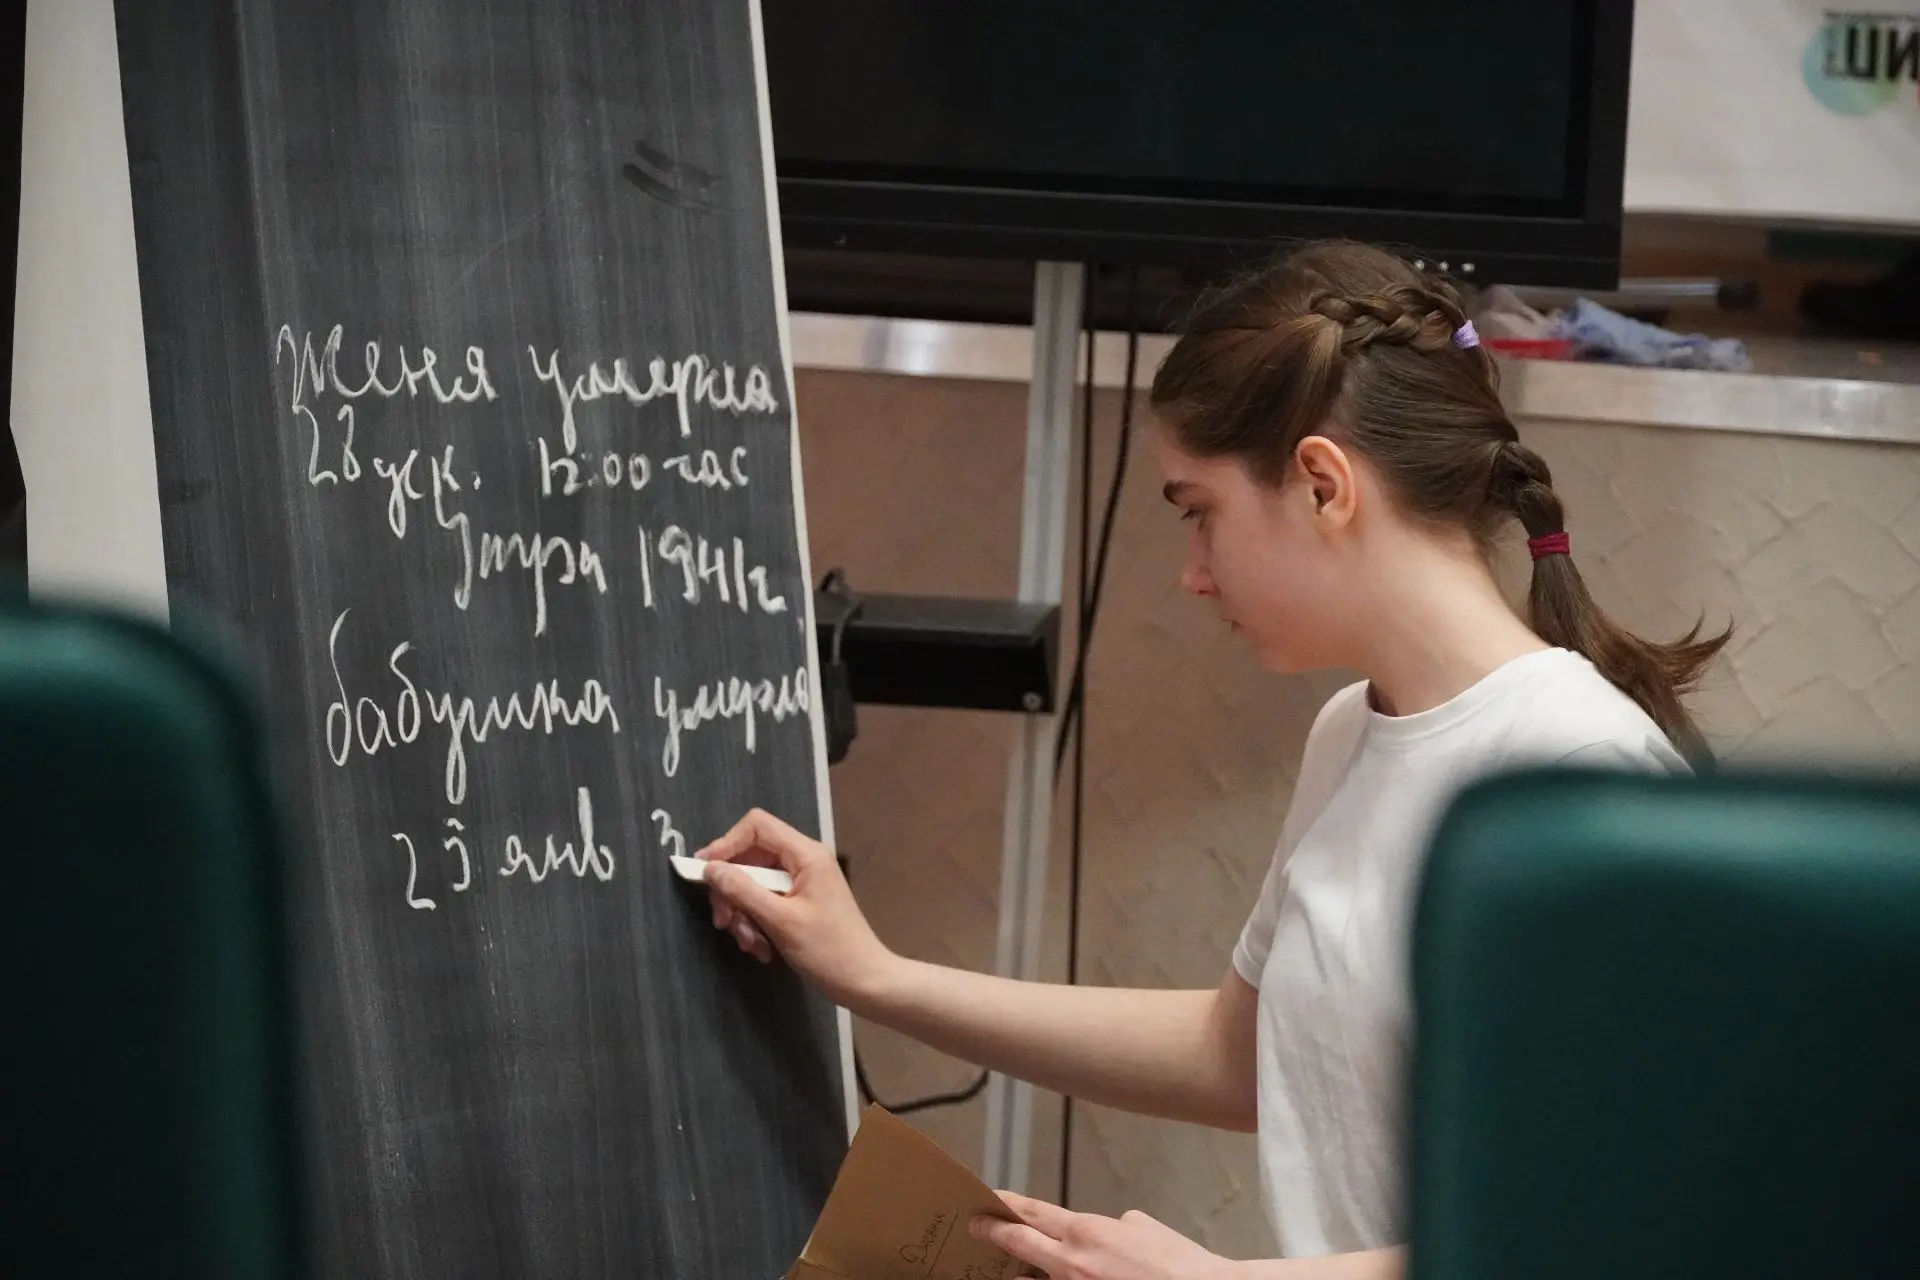 Женя умерла
28 дек. 12:00 час
Утра 1941г.
бабушка умерла
25 янв 3
Дневник